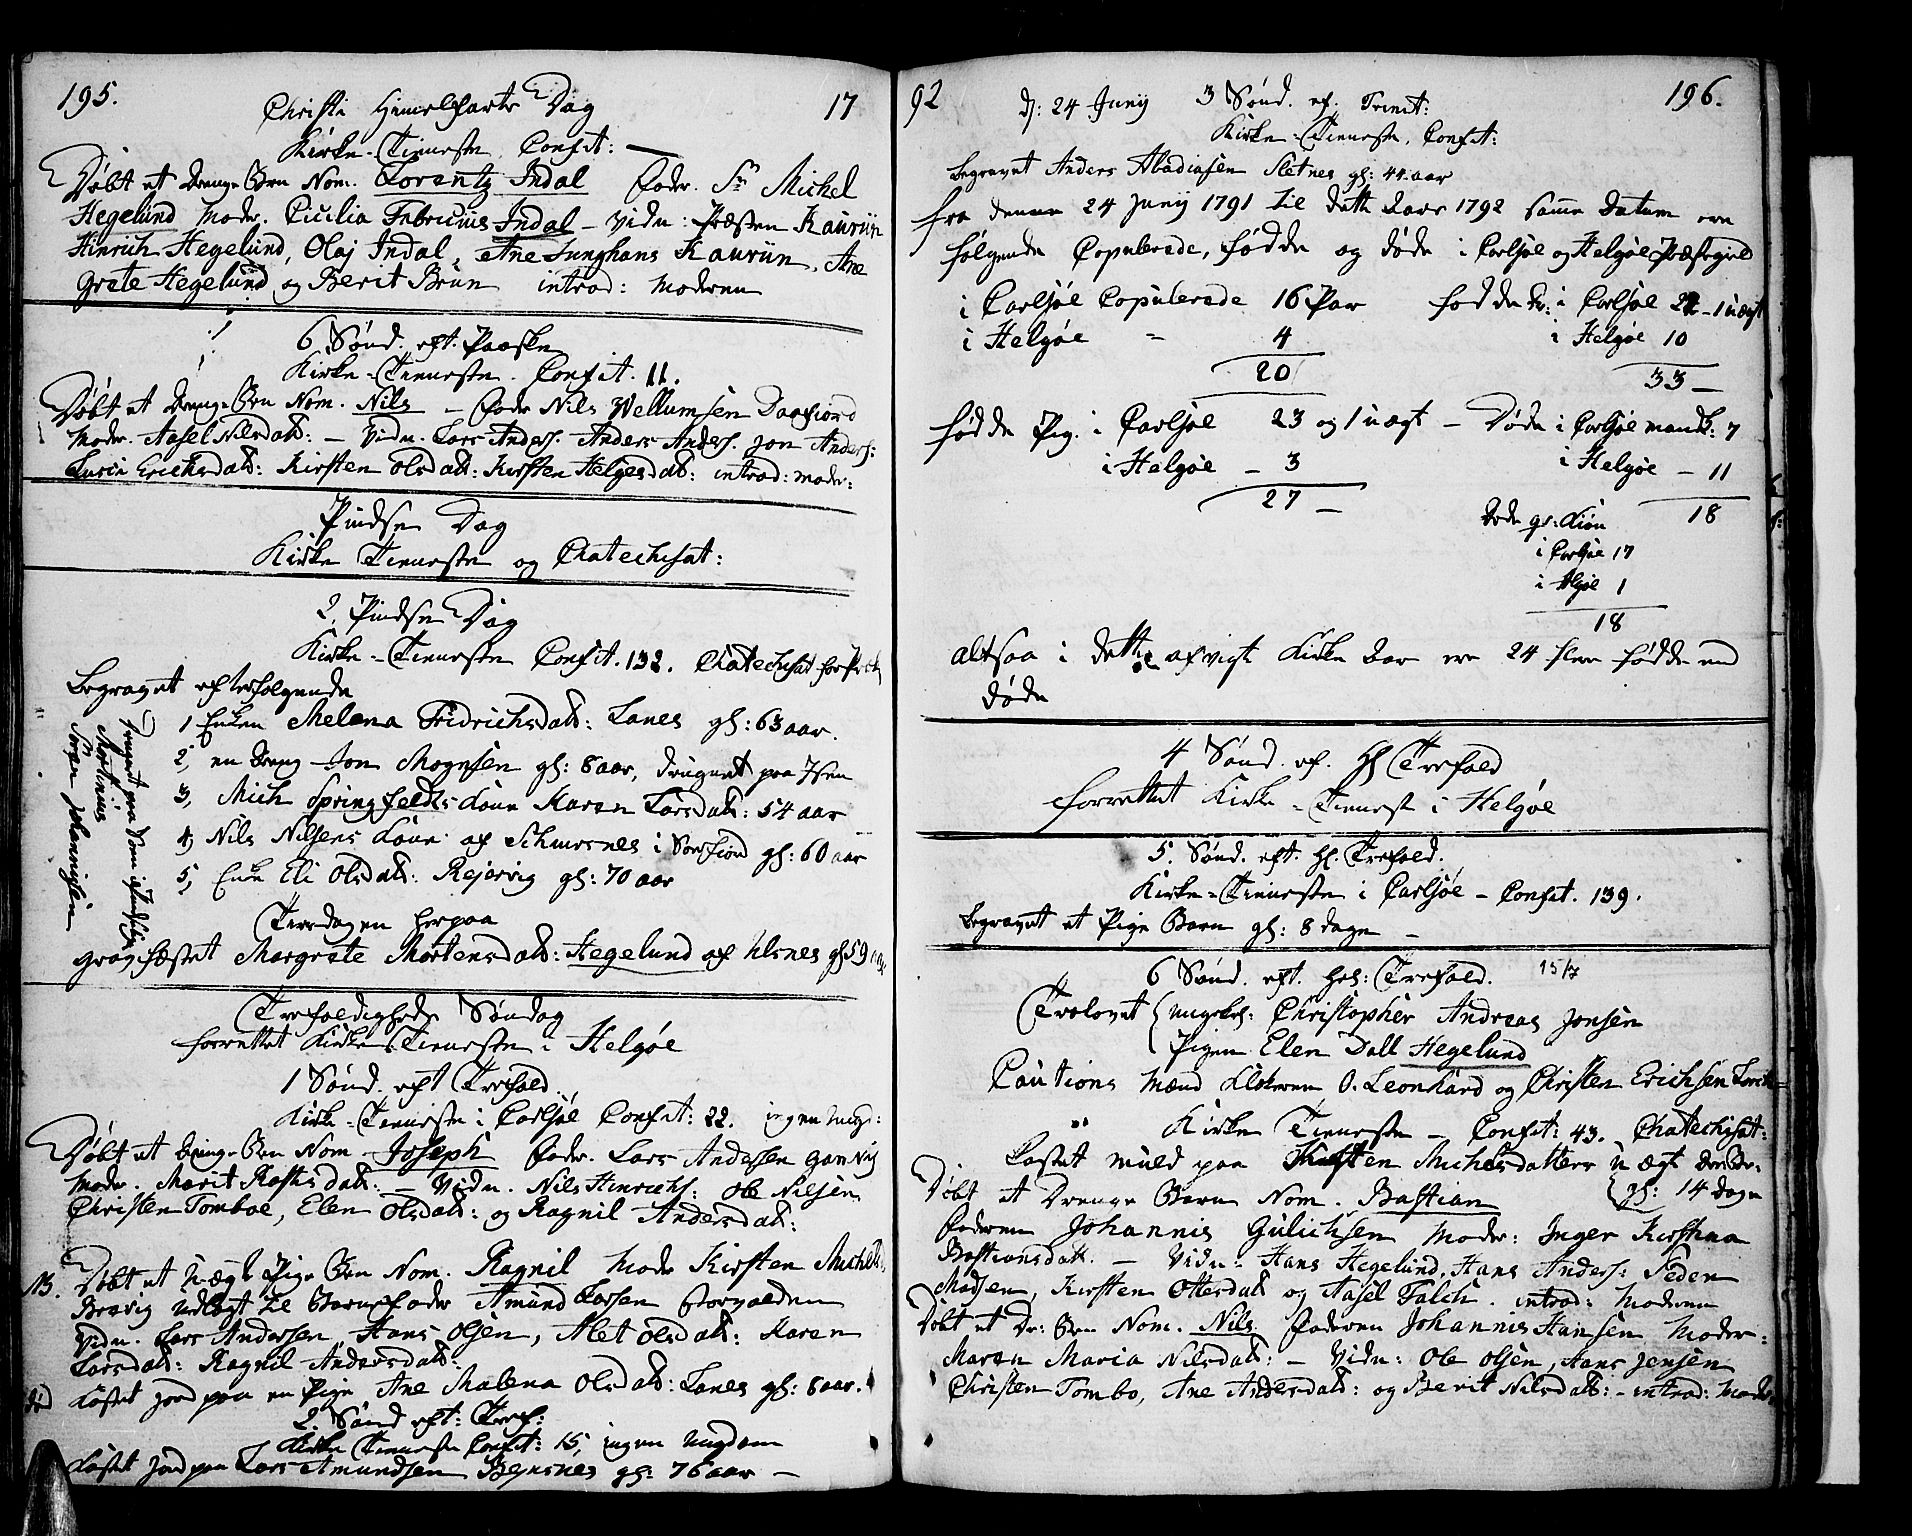 195.
17
Christi Himelfarts Dag
Kirke-Tieneste Confit: —
Døbt et Drenge Brn Nom. Lorentz Indal Fader. Sr Michel
Hegelund Moder. Cicilia Fabricius Indal – Vidn: Præsten Kauriin
Hinrich Hegelund, Olaj Indal, Ane Junghans Kauriin, Ane
Grete Hegelund og Berit Brun introd: Moderen
6 Sønd. eft. Paaske
Kirke-Tieneste. Confit. 11.
Døbt et Drenge Brn Nom. Nils – Fader Nils Wellumsen Daafiord
Moder. Aasel Nilsdatt: – Vidn. Lars Anders. Anders Anders. Jon Anders:
Lucia Erichsdatt: Kirsten Olsdatt: Kirsten Helgesdatt: introd: Moder:
Pindse Dag
Kirke Tieneste og Chatechisat:
2. Pindse Dag
Kirke-Tieneste Confit. 132. Chatechisat for Præk
Begravet efterfølgende
1 Enken Melena Fridrichsdatt: Lanes gl: 63 aar.
2, en Dreng Jon Mognsen gl: 8 aar, druknet paa Isen
3, Mich Springfeldts Kone Karen Larsdatt: 54 aar
4, Nils Nilsens Kone af Schmersnes i Sørfiord gl: 60 aar
5, Enke Eli Olsdatt: Rejervig gl: 70 aar
Søren Johannissen
Mortinus
Tirsdagen herpaa
gravfæstet Margrete Mortensdatt: Hegelund af Ulsnes gl 59 aar
Trefoldigheds Søndag
forrettet Kirke Tieneste i Helgøe
1 Sønd. eft Trefold.
Kirke-Tieneste i Carlsøe Confit: 22. ingen Ungd:
Døbt et Drenge Brn Nom. Joseph Fader. Lars Andersen Gamvig
Moder. Marit Rasksdatt: – Vidn. Nils Hinrichs: Ole Nilsen
Christen Tomboe, Elen Olsdatt: og Ragnil Andersdatt:
13. Døbt et Uægt Pige Brn Nom. Ragnil Mode Kirsten Michelsd
Bravig udlagt til Barnefader Amund Larsen Storgalden
Vidn. Lars Andersen, Hans Olsen, Alet Olsdatt: Karen
Larsdatt: Ragnil Andersdatt:
Kastet Jord paa en Pige Ane Malena Olsdatt: Lanes gl: 8 aar.
2 Sønd eft: Tref:
Kirke Tieneste Confit: 15, ingen Ungdom
Kastet Jord paa Lars Amundsen Bensnes gl: 76 aar –
92
196.
d: 24 Junij 3 Sønd. ef. Trinit:
Kirke-Tieneste, Confit:
Begravet Anders Abadiasen Sletnes gl: 44 aar
Fra denne 24 Junij 1791 til dette Aars 1792 samme Datum ere
følgende Copulerede, fødde og døde i Carlsøe og Helgøe Præstegield
i Carlsøe Copulerede 16 Par fødde Dr: i Carlsøe 22 – 1 uægt
i Helgøe – 4 i Helgøe 10
20 33 –
fødde Pig. i Carlsøe 23 og 1 uægt – Døde i Carlsøe mandk: 7
i Helgøe – 3 i Helgøe – 11
27 – 18
Døde qv: Kiøn
i Carlsøe 17
i Helgøe 1
18
altsaa i dette afvigte Kirke Aar ere 24 flere fødde end
døde
4 Sønd. ef. Hl Trefold
forrettet Kirke-Tieneste i Helgøe
5. Sønd. eft. Hl. Trefold.
Kirke-Tieneste i Carlsøe – Confit. 139.
Begravet et Pige Barn gl: 8 dage –
6 Sønd. eft. Hel: Trefold. 15/7
Trolovet Ungekl: Christopher Andreas Jonsen
Pigen Elen Dall Hegelund
Cautions Mænd Klokeren O. Leonhard og Christen Erichsen
Kirke Tieneste – Confit: 43. Chatechisat:
Kastet muld paa Kirsten Michelsdatters uægt Barn
gl: 14 dage
Døbt et Drenge Barn Nom. Bastian
Faderen Johannis Gulichsen Moder: Inger Kirstina
Bastiansdatt. – Vidn: Hans Hegelund, Hans Anders: Peder
Madsen, Kirsten Ottersdatt og Aasel Falch. introd: Moderen
Døbt et Dr: Brn Nom. Nils Faderen Johannis Hansen Moder:
Maren Maria Nilsdatt: – Vidn: Ole Olsen, Hans Jensen
Christen Tombo, Ane Andersdatt: og Berit Nilsdatt: – introd: Mode